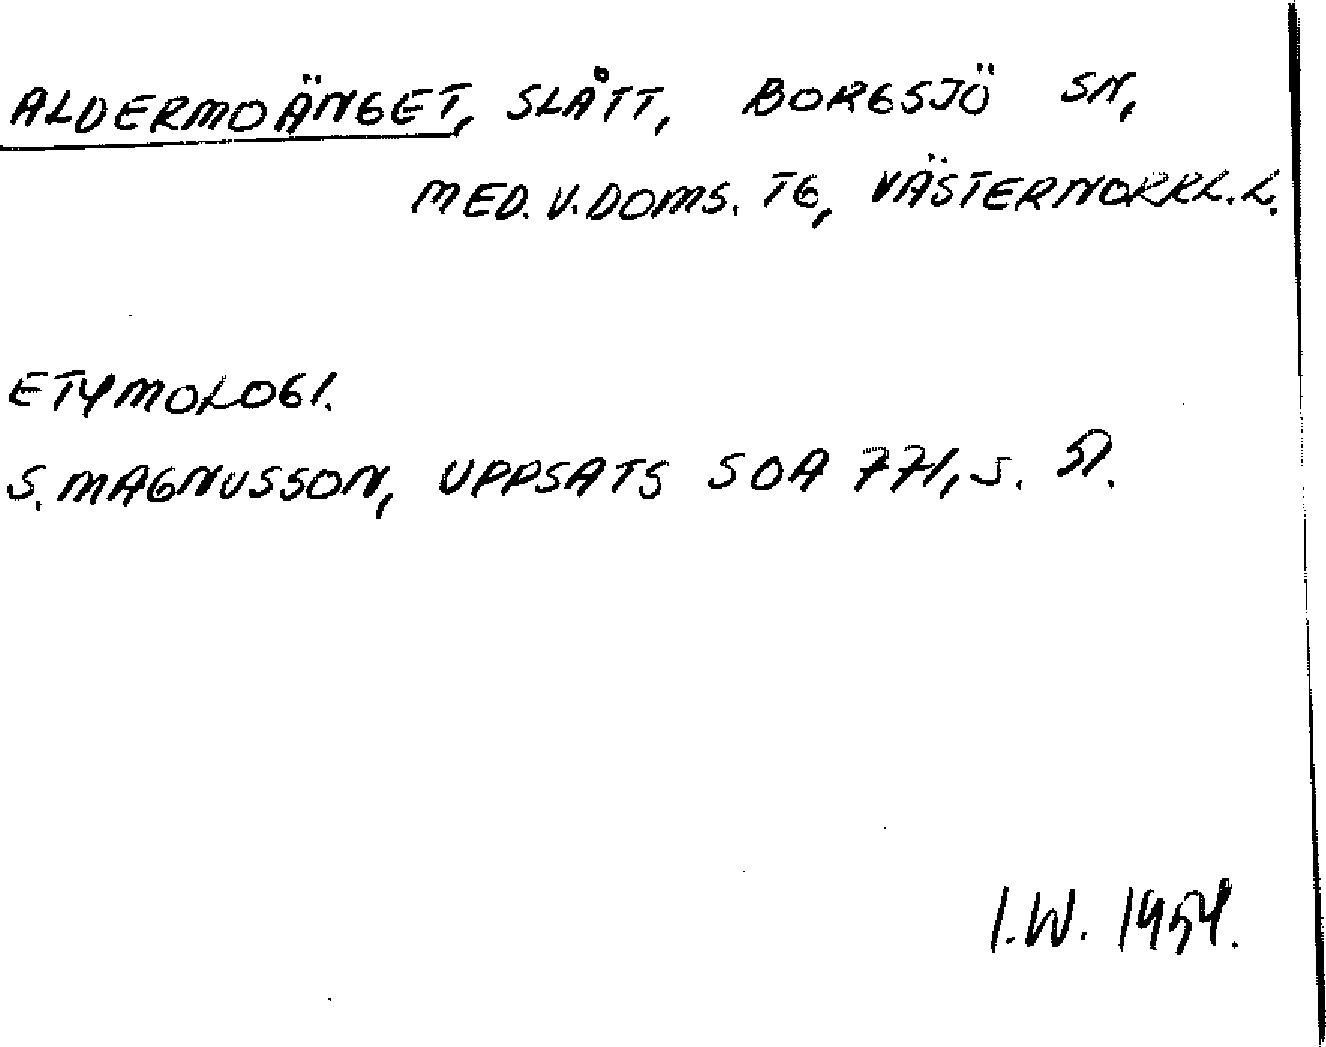 ALDERMOÄNGET, SLÅTT, BORGSJÖ SN,
MED. V. DOMS. TG, VÄSTERNORRL. L.
ETYMOLOGI.
S. MAGNUSSON, UPPSATS SOA 771, S. 51.
I.W. 1954.